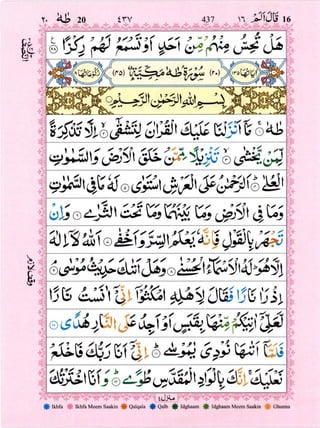 ٢٠ طٰهٰ 20 ٤٣٧ 437 ١٦ قَالَ اَلَمْ 16
هَلْ تُحِسُّ مِنْهُمْ مِّنْ اَحَدٍ اَوْ تَسْمَعُ لَهُمْ رِكْزًا
سُوْرَةُ طٰهٰ مَكِّيَّةٌ
بِسْمِ اللّٰهِ الرَّحْمٰنِ الرَّحِيْمِ
طٰهٰ مَاۤ اَنْزَلْنَا عَلَيْكَ الْقُرْاٰنَ لِتَشْقٰٓى اِلَّا تَذْكِرَةً
لِّمَنْ يَّخْشٰى تَنْزِيْلًا مِّمَّنْ خَلَقَ الْاَرْضَ وَالسَّمٰوٰتِ
الْعُلٰى اَلرَّحْمٰنُ عَلَى الْعَرْشِ اسْتَوٰى لَهٗ مَا فِى السَّمٰوٰتِ
وَمَا فِى الْاَرْضِ وَمَا بَيْنَهُمَا وَمَا تَحْتَ الثَّرٰى وَاِنْ
تَجْهَرْ بِالْقَوْلِ فَاِنَّهٗ يَعْلَمُ السِّرَّ وَاَخْفٰى اَللّٰهُ لَاۤ اِلٰهَ
اِلَّا هُوَ لَهُ الْاَسْمَآءُ الْحُسْنٰى وَهَلْ اَتٰىكَ حَدِيْثُ مُوْسٰى
اِذْ رَاٰ نَارًا فَقَالَ لِاَهْلِهِ امْكُثُوْۤا اِنِّىْۤ اٰنَسْتُ نَارًا
لَّعَلِّىْۤ اٰتِيْكُمْ مِّنْهَا بِقَبَسٍ اَوْ اَجِدُ عَلَى النَّارِ هُدًى
فَلَمَّاۤ اَتٰىهَا نُوْدِىَ يٰمُوْسٰى اِنِّىْۤ اَنَا رَبُّكَ فَاخْلَعْ
نَعْلَيْكَ اِنَّكَ بِالْوَادِ الْمُقَدَّسِ طُوًى وَاَنَا اخْتَرْتُكَ
منزل ٤
Ikhfa Ikhfa Meem Saakin Qalqala Qalb Idghaam Idghaam Meem Saakin Ghunna